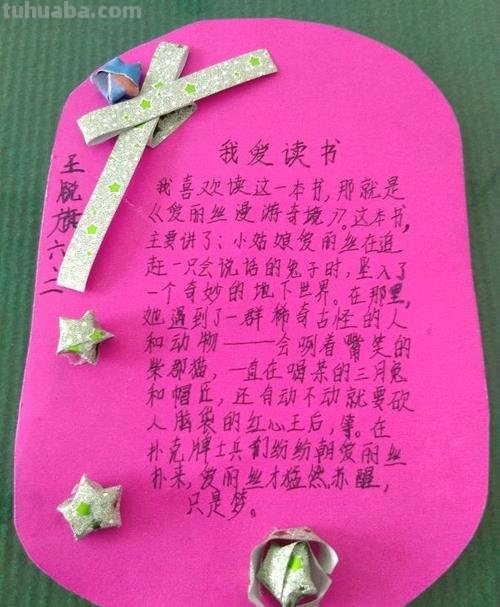 tuhuaba.com
我爱读书
我喜欢读这一本书,那就是
《爱丽丝漫游奇境》。这本书,
主要讲了:小姑娘爱丽丝在追
赶一只会说话的兔子时,坠入了
一个奇妙的地下世界。在那里,
她遇到了一群稀奇古怪的人
和动物——会咧着嘴笑的
柴郡猫,一直在喝茶的三月兔
和帽匠,还自动不动就要砍
人脑袋的红心王后,等。在
扑克牌士兵们纷纷朝爱丽丝
扑来,爱丽丝才猛然苏醒,
只是梦。
王脱旗
六二